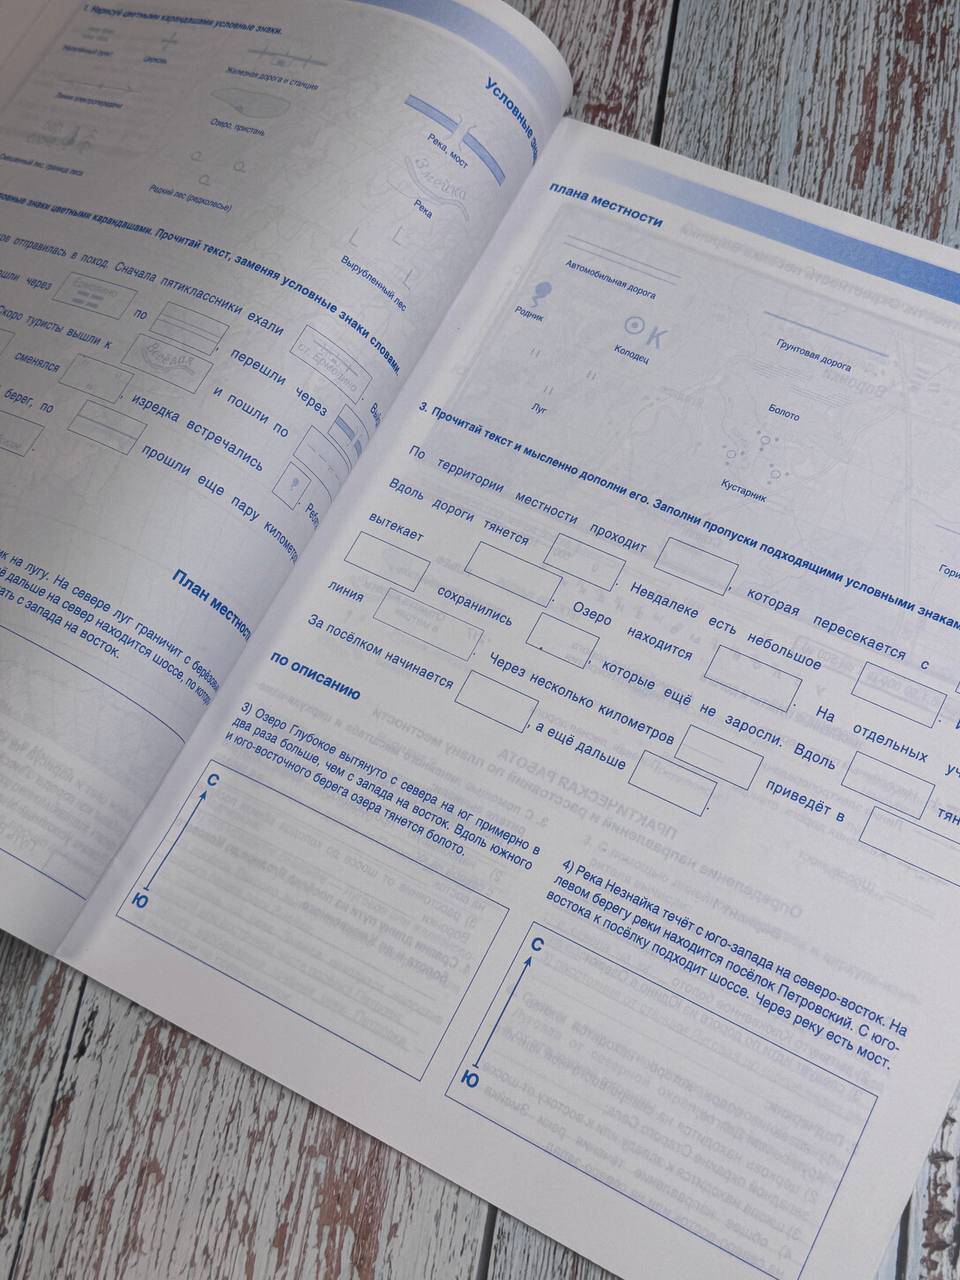 1. Нарисуй цветными карандашами условные знаки.
Населённый пункт
Церковь
Железная дорога и станция
Условные зна
Линия электропередачи
Озеро, пристань
Река, мост
Змейка
Река
Смешанный лес, граница леса
Редкий лес (редколесье)
Вырубленный лес
знаки цветными карандашами. Прочитай текст, заменяя условные знаки словами
отправилась в поход. Сначала пятиклассники ехали
ст. Ермолино
через
по
, перешли через
Скоро туристы вышли к
и пошли по
сменялся
, изредка встречались
берег, по
прошли еще пару километр
План местнос
на лугу. На севере луг граничит с берёзовы
дальше на север находится шоссе, по котор
с запада на восток.
плана местности
Автомобильная дорога
Родник
К
Колодец
Грунтовая дорога
Луг
Болото
Кустарник
Гори
3. Прочитай текст и мысленно дополни его. Заполни пропуски подходящими условными знакам
По территории местности проходит
, которая пересекается с
Вдоль дороги тянется
. Невдалеке есть небольшое
вытекает
. Озеро находится
. На отдельных уч
сохранились
, которые ещё не заросли. Вдоль
тян
линия
. Через несколько километров
приведёт в
За посёлком начинается
, а ещё дальше
.
по описанию
3) Озеро Глубокое вытянуто с севера на юг примерно в
два раза больше, чем с запада на восток. Вдоль южного
и юго-восточного берега озера тянется болото.
С
Ю
4) Река Незнайка течёт с юго-запада на северо-восток. На
левом берегу реки находится посёлок Петровский. С юго-
востока к посёлку подходит шоссе. Через реку есть мост.
С
Ю